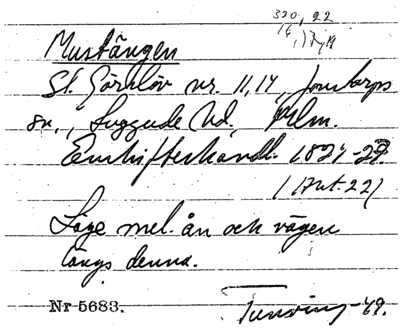 320, 22
Mustången
St. Görslöv nr. 11, 14, Jonstorps
sn., Luggude hd, Mlm.
Enskifteshandl. 1824-27.
(Akt. 22)
Läge mel. ån och vägen
längs denna.
Nr 5683. Tunving -69.